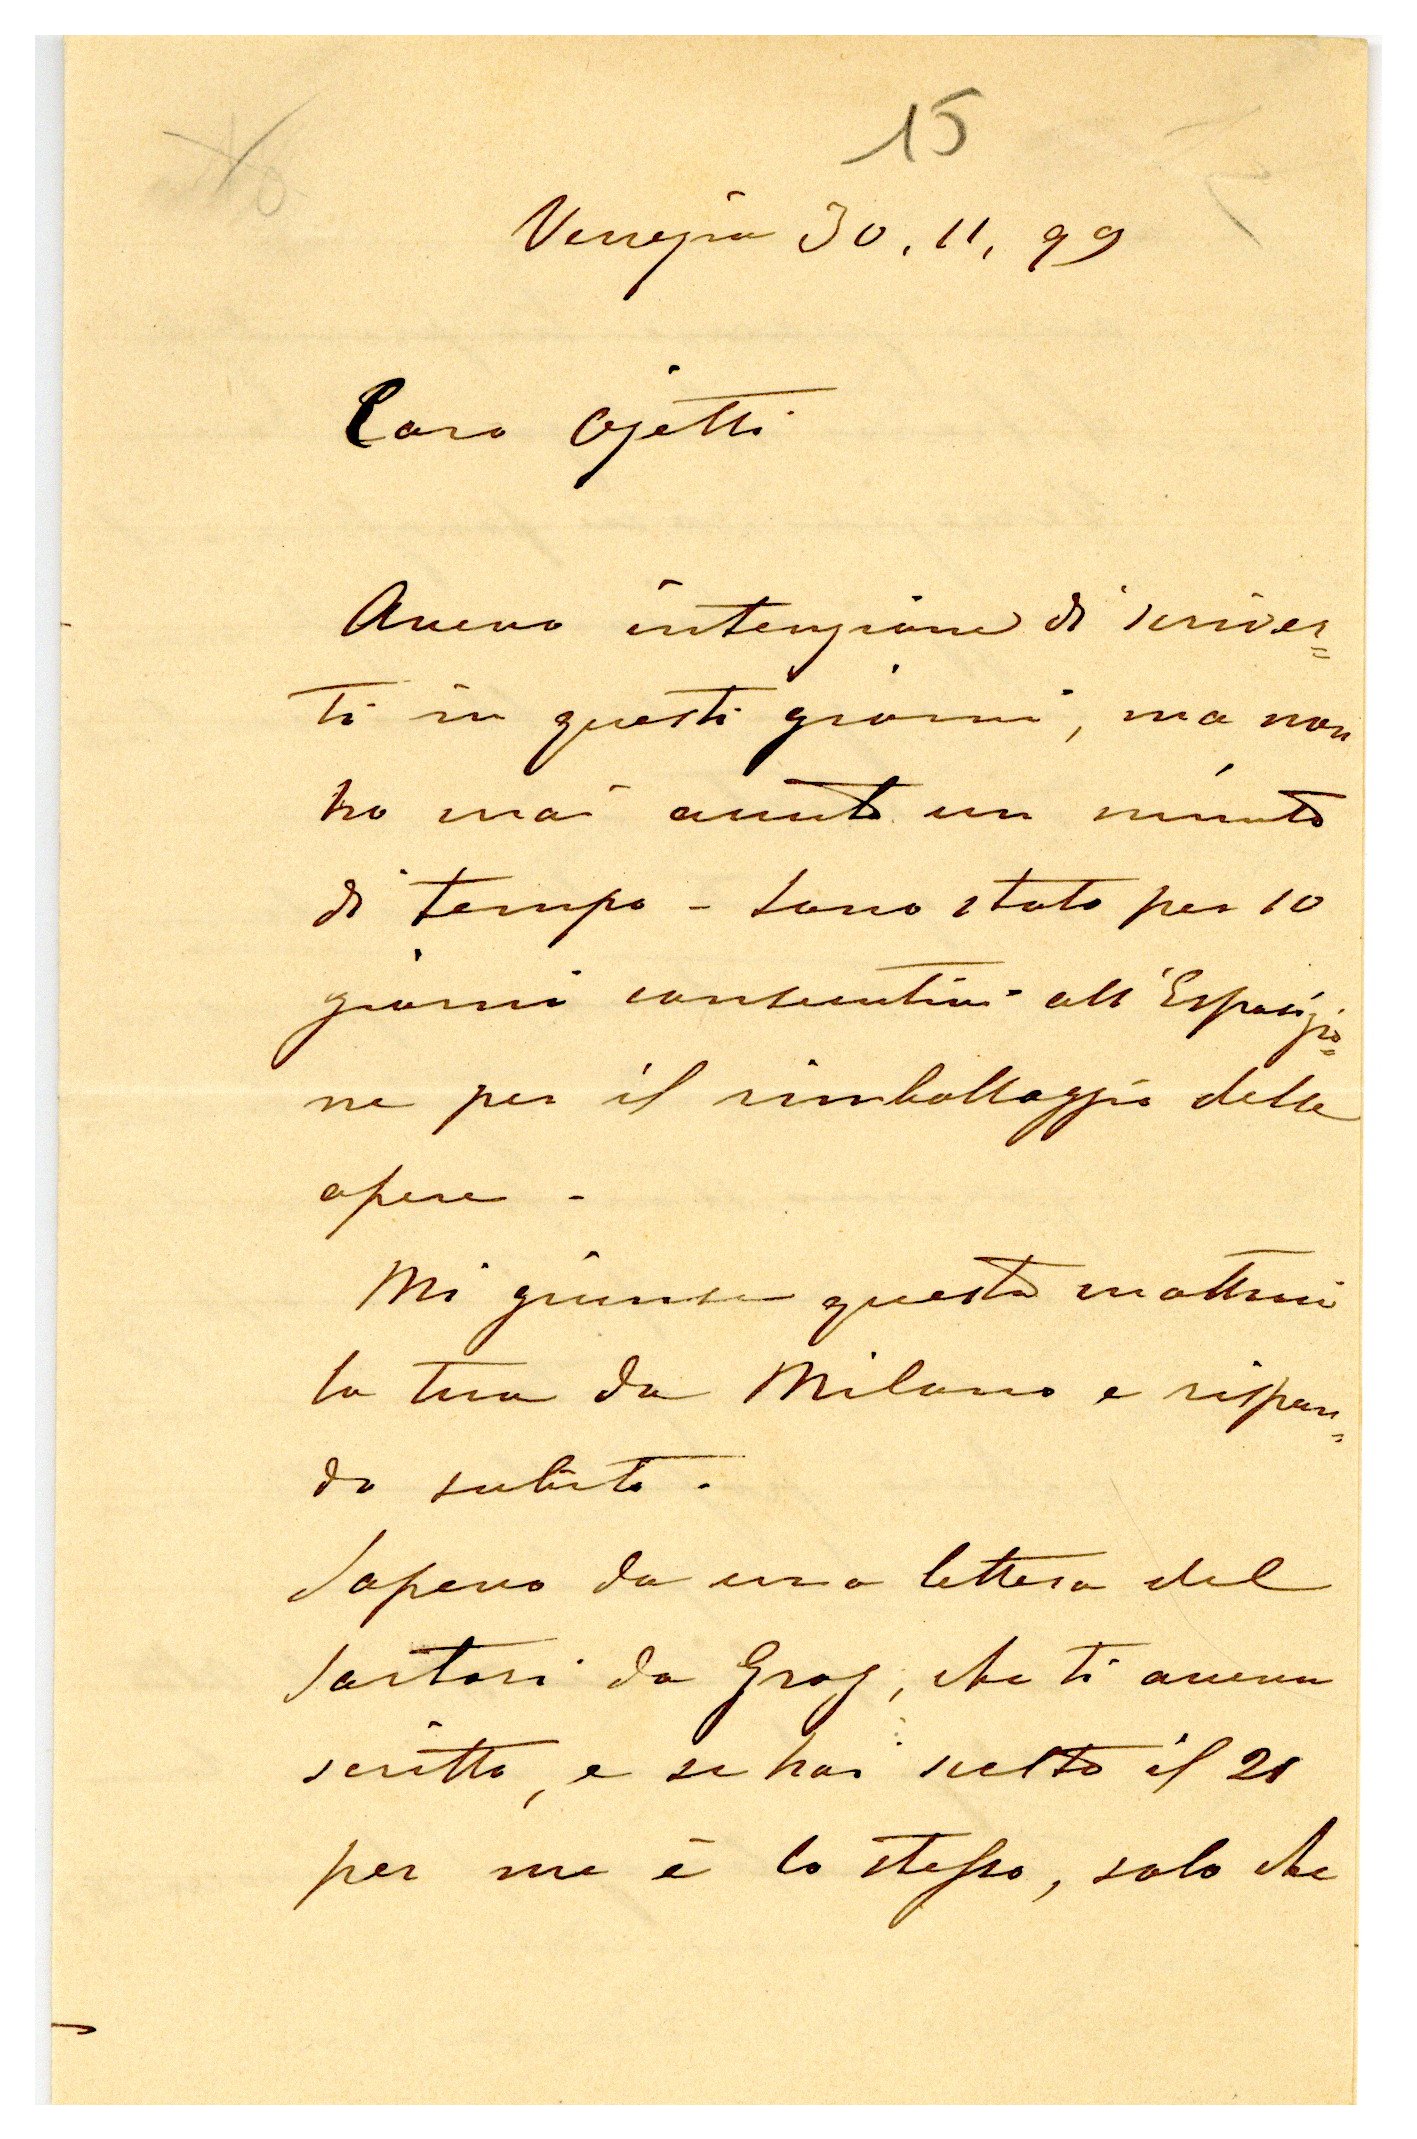 15
Venezia 30. 11. 99
Caro Ojetti
Avevo intenzione di scriver=
ti in questi giorni, ma non
ho mai avuto un minuto
di tempo - Sono stato per 10
giorni consecutivi all'Esposizio=
ne per il rimballaggio delle
opere -
Mi giunse questa mattina
la tua da Milano e rispon=
do subito.
Sapevo da una lettera del
Sartori da Graz, che ti aveva
scritto, e se hai scelto il 21
per me è lo stesso, solo che